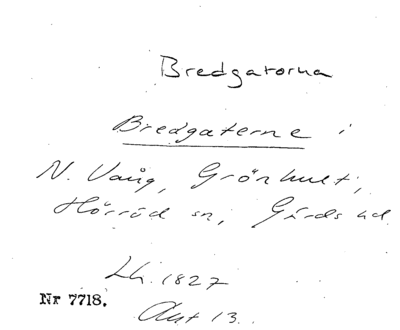 Bredgatorna
Bredgaterne i
N. Vång, Grönhult,
Hörröd sn, Gärds hd.
Lh. 1827
Nr 7718.
Akt 13.